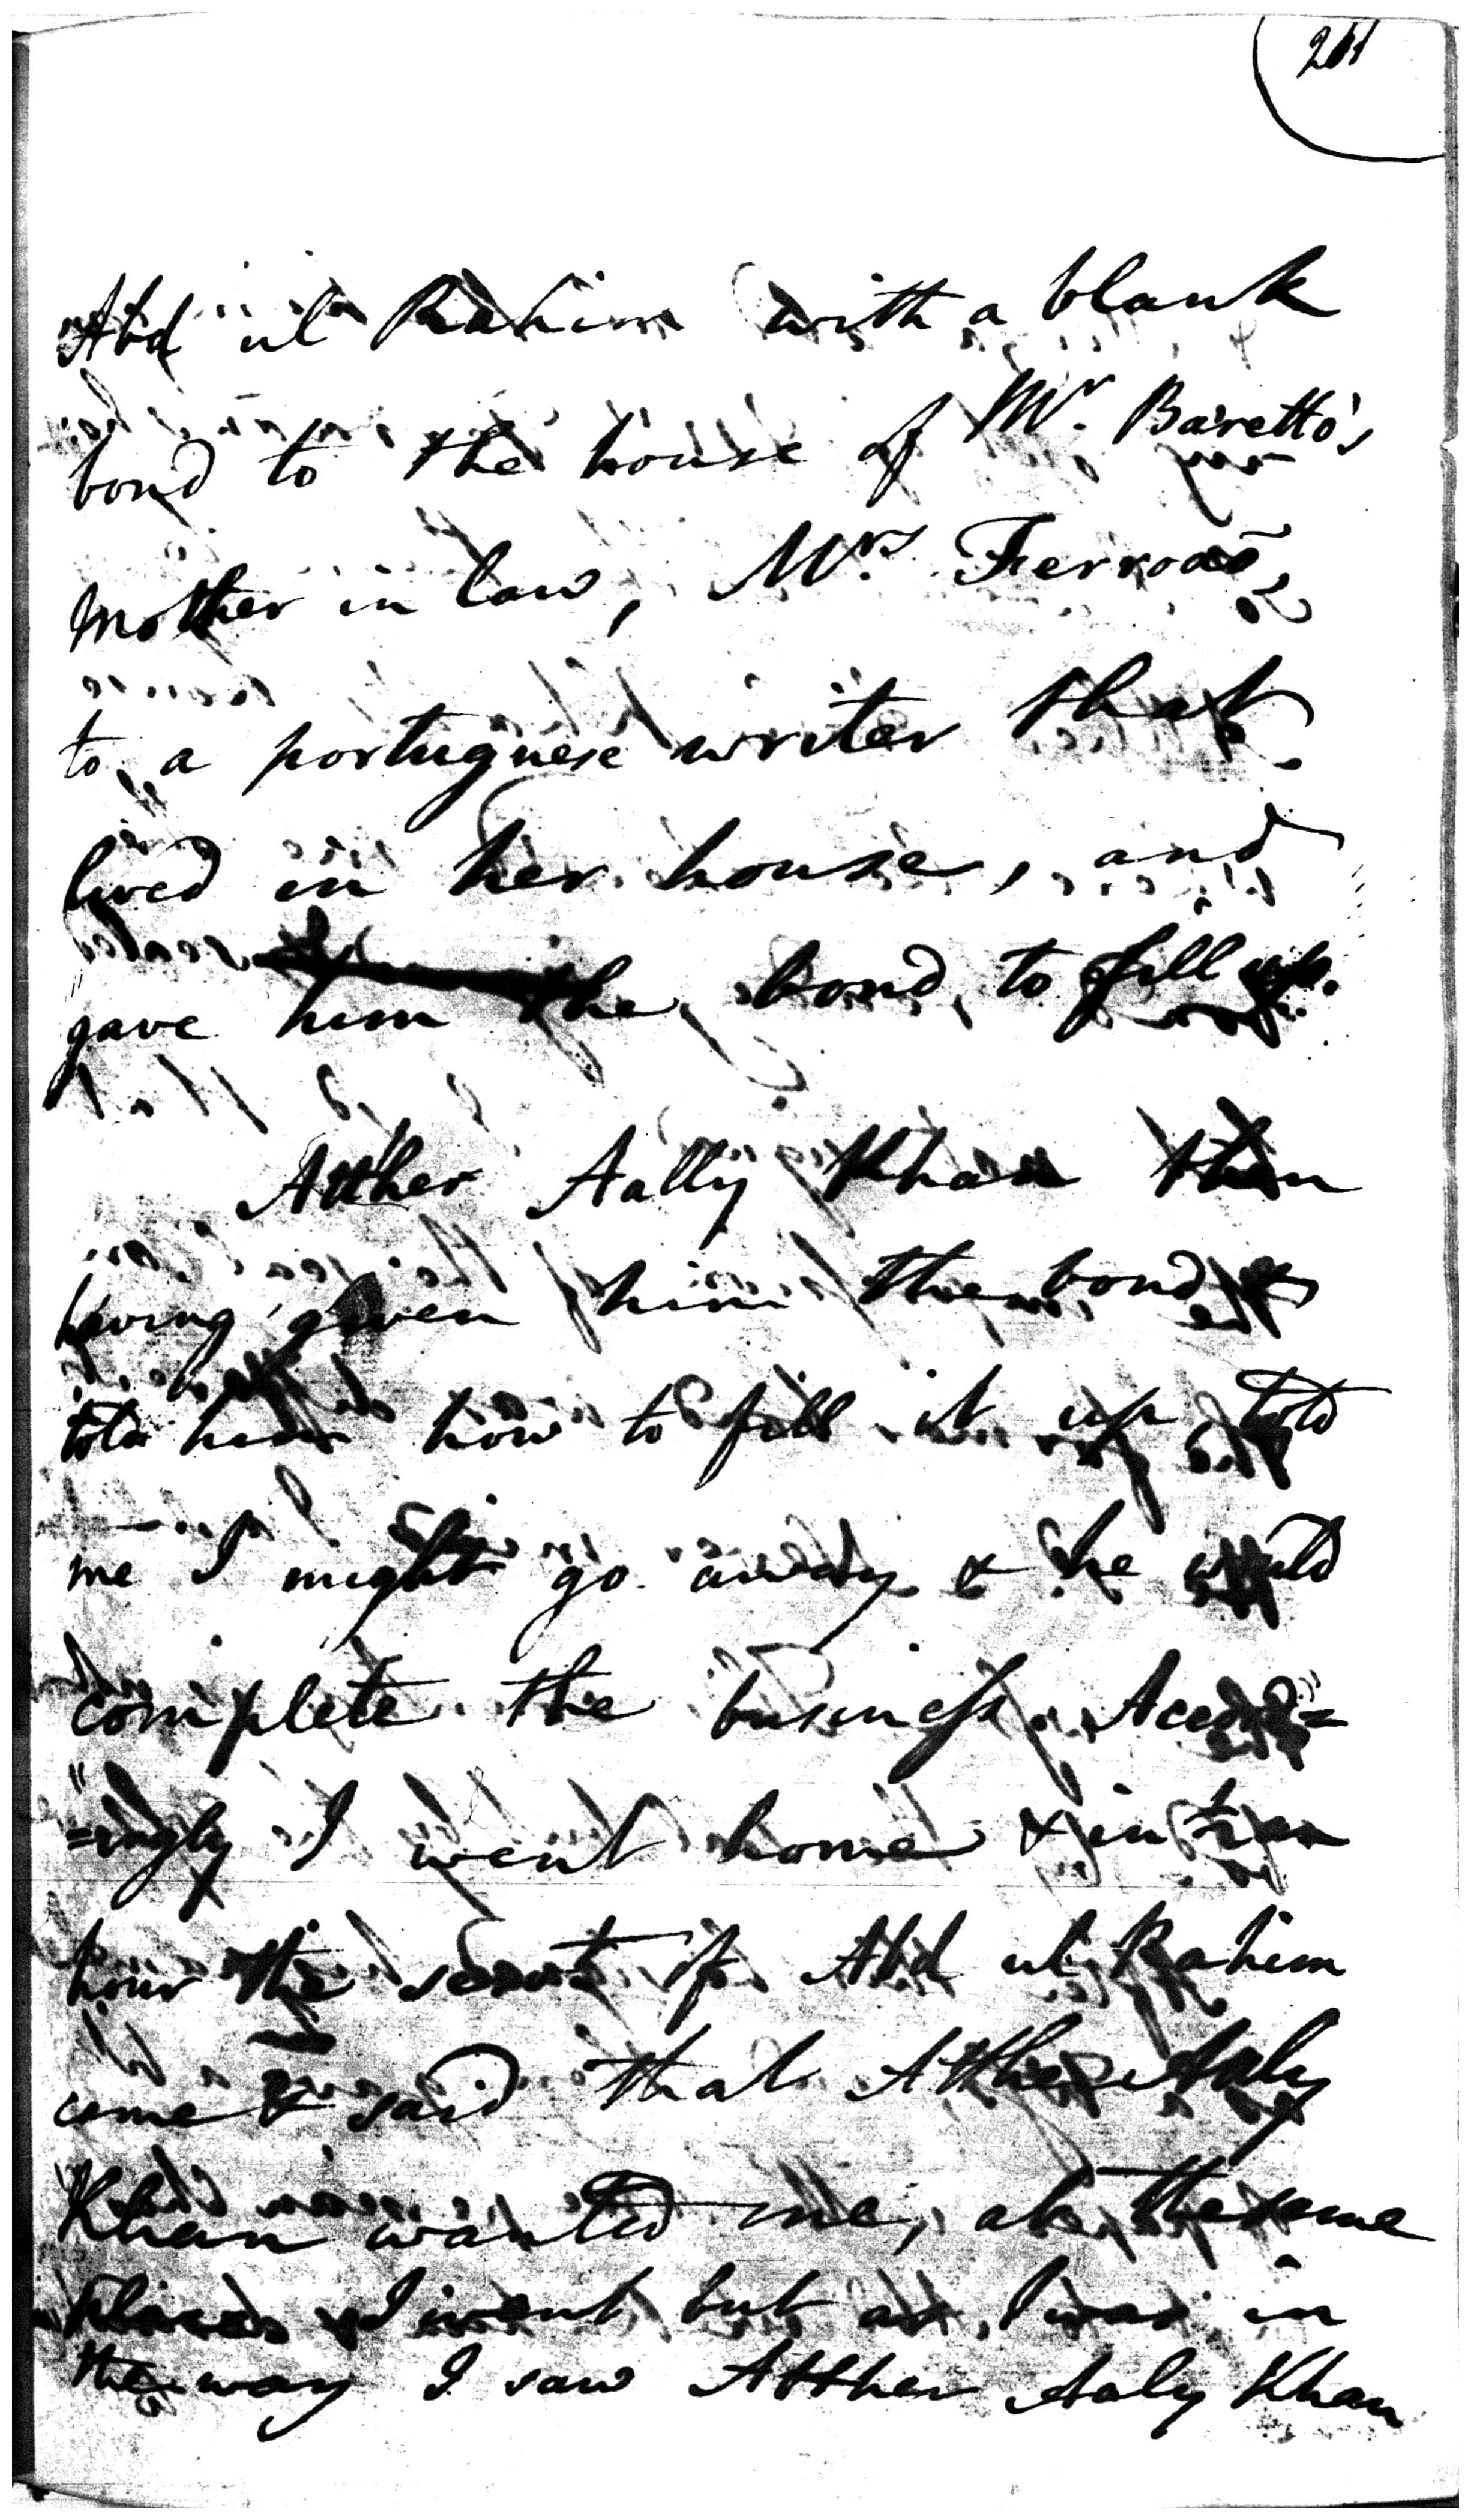 Abd ul Rahim with a blank
bond to the house of Mr. Baretto's
Mother in law, Mrs. Ferrao's,
to a portuguese writer that
lived in her house, and
gave him the bond to fill up.
Atther Aally Khan then
having given him the bond &
told him how to fill it up told
me I might go away & he would
complete the business. Accord=
=ingly I went home & in an
hour the servt. of Abd ul Rahim
came & said that Atther Aaly
Khan wanted me, at the same
place & I went but as I was in
the way I saw Atther Aaly Khan